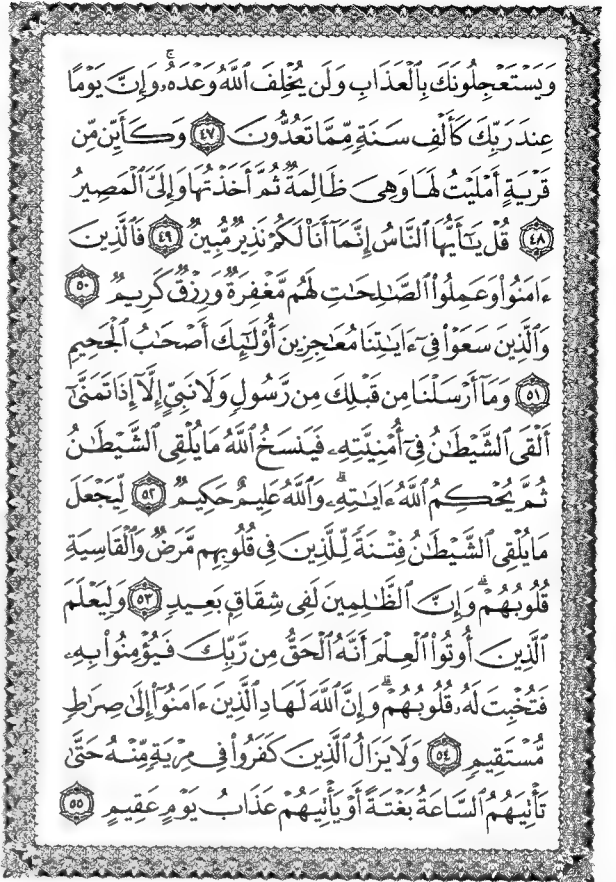 وَيَسْتَعْجِلُونَكَ بِالْعَذَابِ وَلَن يُخْلِفَ اللَّهُ وَعْدَهُۥۚ وَإِنَّ يَوْمًا
عِندَ رَبِّكَ كَأَلْفِ سَنَةٍ مِّمَّا تَعُدُّونَ ٤٧ وَكَأَيِّن مِّن
قَرْيَةٍ أَمْلَيْتُ لَهَا وَهِيَ ظَالِمَةٌ ثُمَّ أَخَذْتُهَا وَإِلَيَّ الْمَصِيرُ
٤٨ قُلْ يَٰٓأَيُّهَا النَّاسُ إِنَّمَآ أَنَا۠ لَكُمْ نَذِيرٌ مُّبِينٌ ٤٩ فَالَّذِينَ
ءَامَنُوا۟ وَعَمِلُوا۟ الصَّٰلِحَٰتِ لَهُم مَّغْفِرَةٌ وَرِزْقٌ كَرِيمٌ ٥٠
وَالَّذِينَ سَعَوْا۟ فِىٓ ءَايَٰتِنَا مُعَٰجِزِينَ أُو۟لَٰٓئِكَ أَصْحَٰبُ الْجَحِيمِ
٥١ وَمَآ أَرْسَلْنَا مِن قَبْلِكَ مِن رَّسُولٍ وَلَا نَبِىٍّ إِلَّآ إِذَا تَمَنَّىٰٓ
أَلْقَى الشَّيْطَٰنُ فِىٓ أُمْنِيَّتِهِۦ فَيَنسَخُ اللَّهُ مَا يُلْقِى الشَّيْطَٰنُ
ثُمَّ يُحْكِمُ اللَّهُ ءَايَٰتِهِۦۗ وَاللَّهُ عَلِيمٌ حَكِيمٌ ٥٢ لِّيَجْعَلَ
مَا يُلْقِى الشَّيْطَٰنُ فِتْنَةً لِّلَّذِينَ فِى قُلُوبِهِم مَّرَضٌ وَالْقَاسِيَةِ
قُلُوبُهُمْۗ وَإِنَّ الظَّٰلِمِينَ لَفِى شِقَاقٍۭ بَعِيدٍ ٥٣ وَلِيَعْلَمَ
الَّذِينَ أُوتُوا۟ الْعِلْمَ أَنَّهُ الْحَقُّ مِن رَّبِّكَ فَيُؤْمِنُوا۟ بِهِۦ
فَتُخْبِتَ لَهُۥ قُلُوبُهُمْۗ وَإِنَّ اللَّهَ لَهَادِ الَّذِينَ ءَامَنُوٓا۟ إِلَىٰ صِرَٰطٍ
مُّسْتَقِيمٍ ٥٤ وَلَا يَزَالُ الَّذِينَ كَفَرُوا۟ فِى مِرْيَةٍ مِّنْهُ حَتَّىٰ
تَأْتِيَهُمُ السَّاعَةُ بَغْتَةً أَوْ يَأْتِيَهُمْ عَذَابُ يَوْمٍ عَقِيمٍ ٥٥